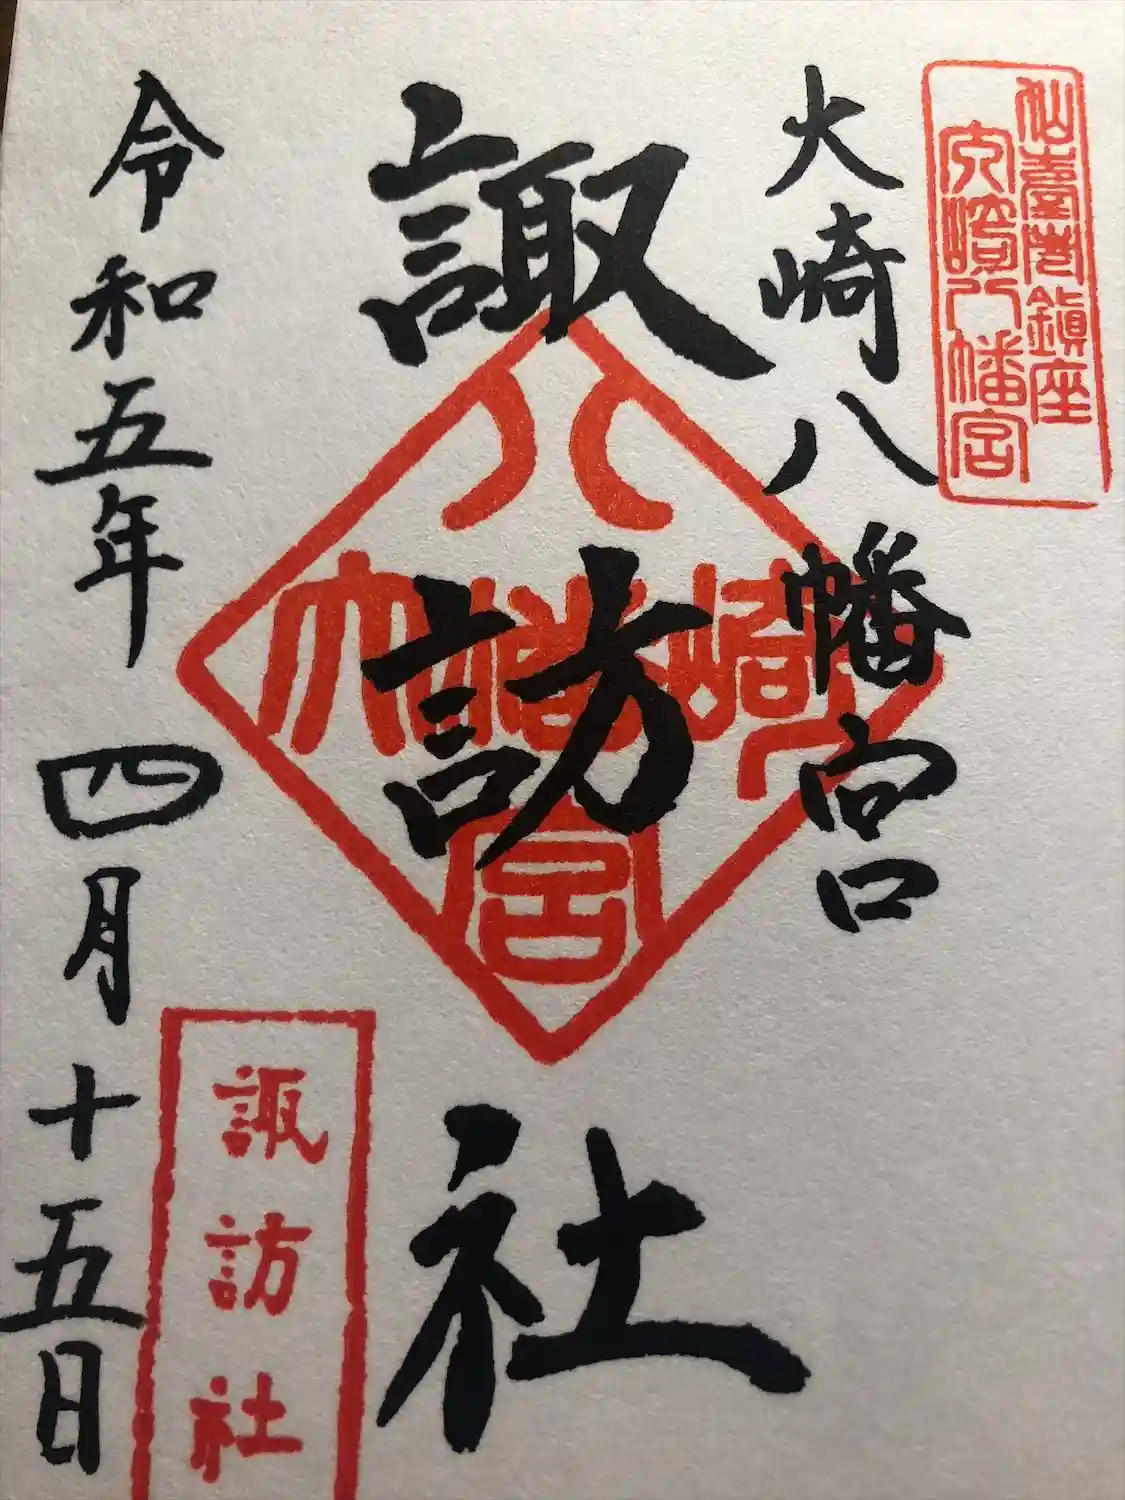 仙臺市鎮座
大崎八幡宮
大崎八幡宮
諏訪社
八
大幡崎
宮
諏訪社
令和五年四月十五日